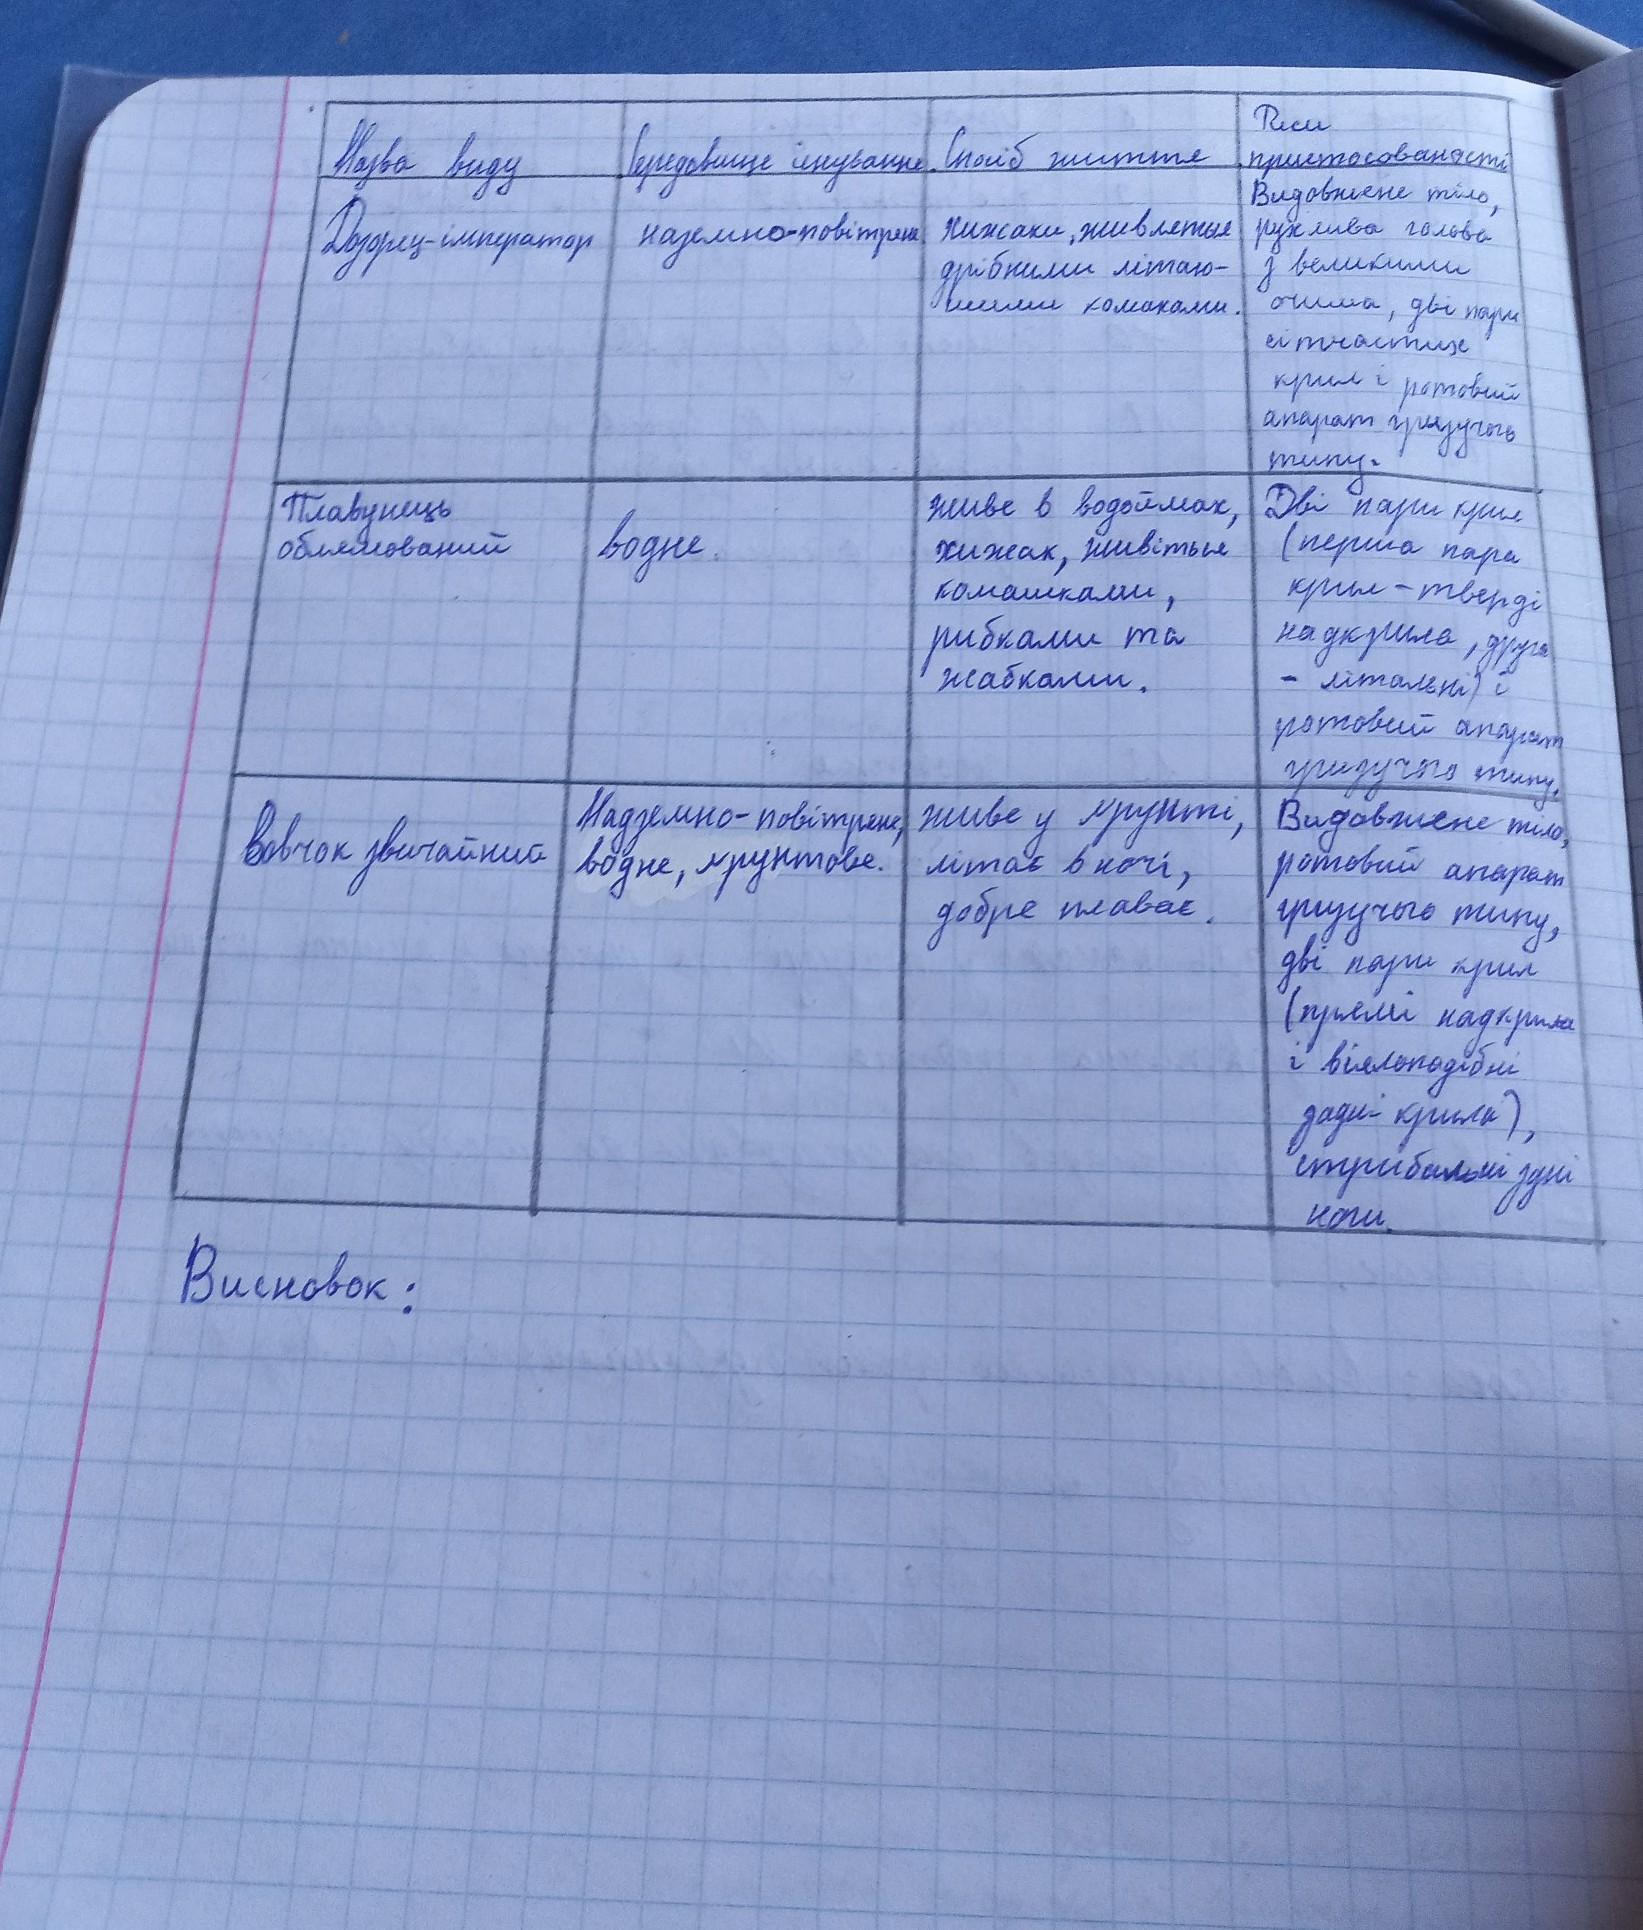 Назва виду
Середовище існування.
Спосіб життя
Риси
пристосованості
Дозорец-імператор
наземно-повітряне
хижаки, живляться
дрібними літаю-
чими комахами.
Видовжене тіло,
рухлива голова
з великими
очима, дві пари
сітчастих
крил і ротовий
апарат гризучого
типу.
Плавунець
облямований
водне.
живе в водоймах,
хижак, живіться
комашками,
рибками та
жабками.
Дві пари крил
(перша пара
крил - тверді
надкрила, друга
- літальні) і
ротовий апарат
гризучого типу.
Вовчок звичайний
Надземно-повітряне,
водне, ґрунтове.
живе у ґрунті,
літає вночі,
добре плаває.
Видовжене тіло,
ротовий апарат
гризучого типу,
дві пари крил
(прямі надкрила
і віялоподібні
задні крила),
стрибальні здні
ноги.
Висновок: